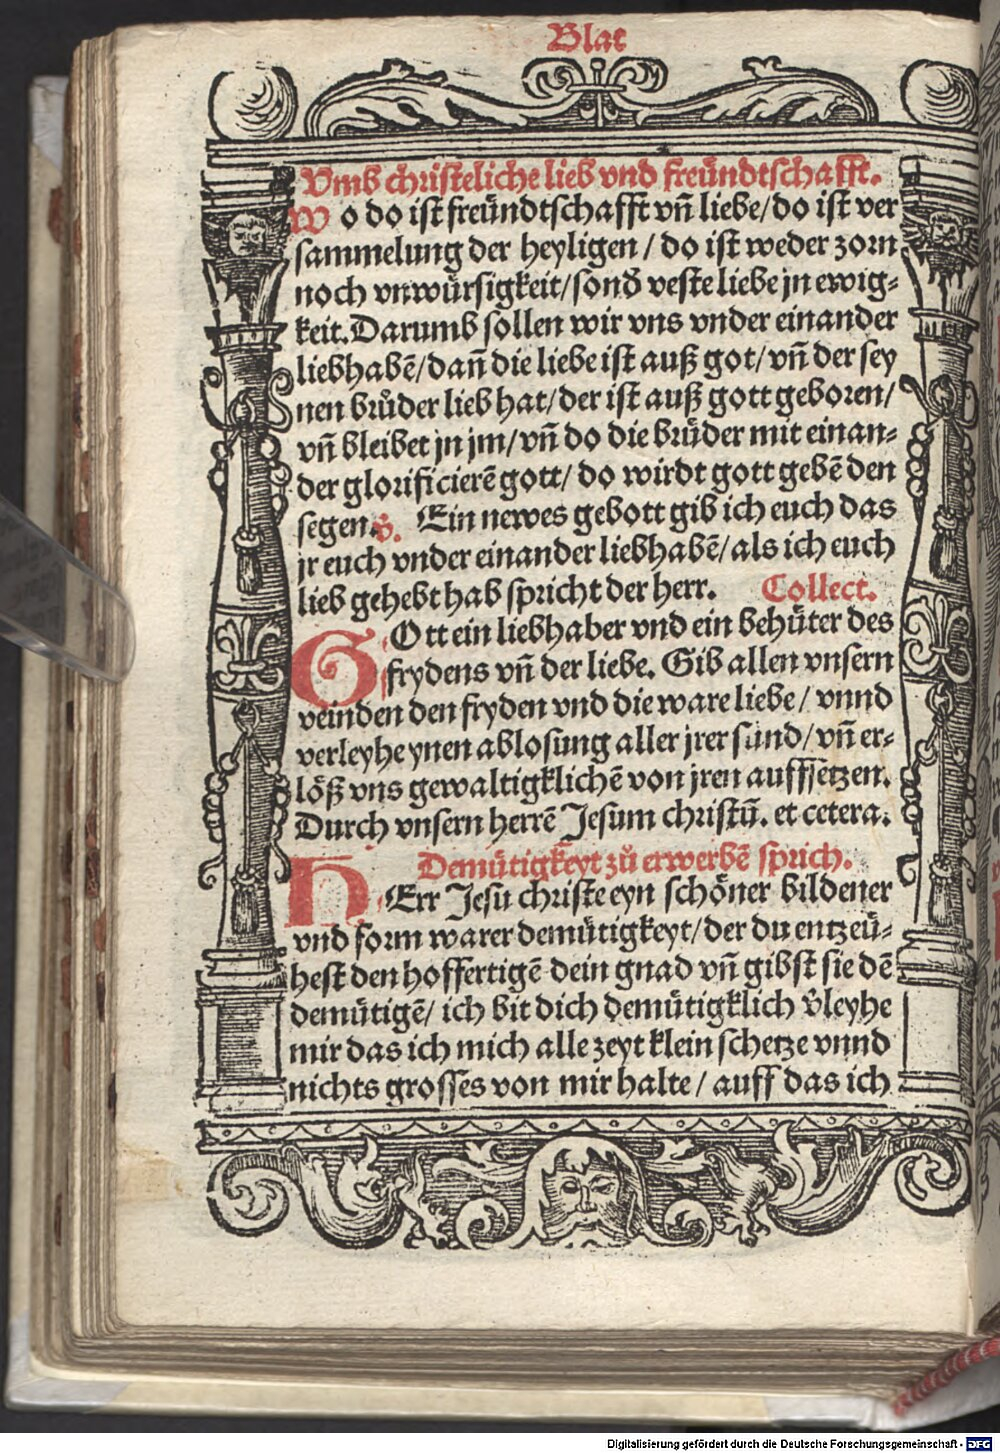 Blat
Vmb christeliche lieb vnd freündtschafft.
Wo do ist freündtschafft vn̄ liebe/do ist ver
sammelung der heyligen/do ist weder zorn
noch vnwürsigkeit/sonď veste liebe jn ewig⸗
keit. Darumb sollen wir vns vnder einander
liebhabē/dan̄ die liebe ist auß got/vn̄ der sey
nen brůder lieb hat/der ist auß gott geboren/
vn̄ bleibet jn jm/vn̄ do die brüder mit einan⸗
der glorificierē gott/do wirdt gott gebē den
segen. v̊. Ein newes gebott gib ich euch das
jr euch vnder einander liebhabē/als ich euch
lieb gehebt hab spricht der herr. Collect.
GOtt ein liebhaber vnd ein behüter des
frydens vn̄ der liebe. Gib allen vnsern
veinden den fryden vnd die ware liebe/vnnd
verleyhe ynen ablosung aller jrer sünd/vn̄ er⸗
löß vns gewaltigklichē von jren auffsetzen.
Durch vnsern herrē Jesum christū. et cetera.
Demütigkeyt zů erwerbē sprich.
HErr Jesu christe eyn schöner bildener
vnd form warer demütigkeyt/der du entzeü⸗
hest den hoffertigē dein gnad vn̄ gibst sie dē
demütigē/ich bit dich demütigklich v̊leyhe
mir das ich mich alle zeyt klein schetze vnnd
nichts grosses von mir halte/auff das ich
Digitalisierung gefördert durch die Deutsche Forschungsgemeinschaft - DFG